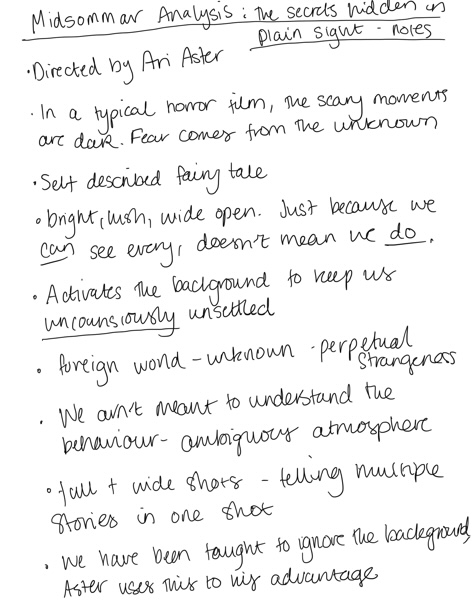 Midsommar Analysis : the secrets hidden in
plain sight - notes
• Directed by Ari Aster
• In a typical horror film, the scary moments
are dark. Fear comes from the unknown
• Self described fairy tale
• bright, lush, wide open. Just because we
can see every, doesn't mean we do.
• Activates the background to keep us
uncounsiously unsettled
• foreign world - unknown - perpetual
strangeness
• We ain't meant to understand the
behaviour - ambiguous atmosphere
• full + wide shots - telling multiple
stories in one shot
• we have been taught to ignore the background,
Aster uses this to his advantage